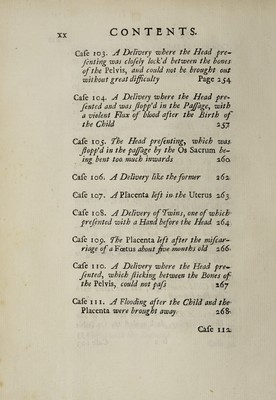 xx CONTENTS.
Caſe 103. A Delivery where the Head pre-
ſenting was cloſely lock'd between the bones
of the Pelvis, and could not be brought out
without great difficulty Page 254
Caſe 104. A Delivery where the Head pre-
ſented and was ſtopp'd in the Paſſage, with
a violent Flux of blood after the Birth of
the Child 257
Caſe 105. The Head preſenting, which was
ſtopp'd in the paſſage by the Os Sacrum be-
ing bent too much inwards 260
Caſe 106. A Delivery like the former 262
Caſe 107. A Placenta left in the Uterus 263
Caſe 108. A Delivery of Twins, one of which
preſented with a Hand before the Head 264
Caſe 109. The Placenta left after the miſcar-
riage of a Fœtus about five months old 266
Caſe 110. A Delivery where the Head pre-
ſented, which ſticking between the Bones of
the Pelvis, could not paſs 267
Caſe 111. A Flooding after the Child and the
Placenta were brought away 268
Caſe 112.